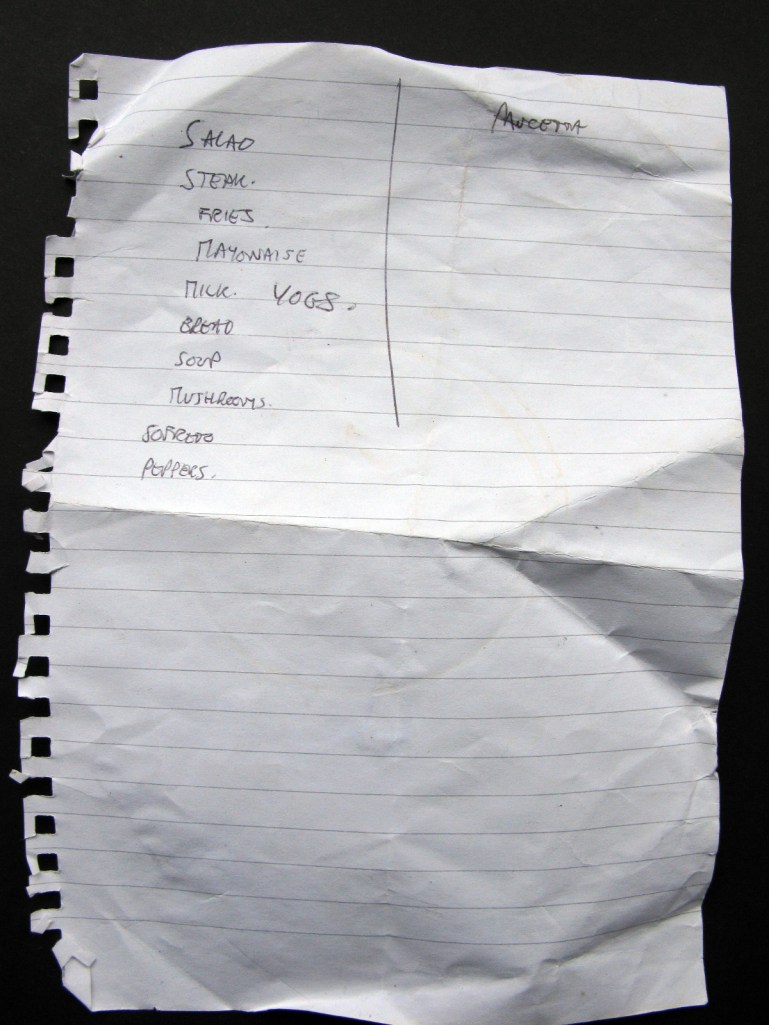 SALAD
STEAK.
FRIES
MAYONAISE
MILK. YOGS.
BREAD
SOUP
MUSHROOMS.
SOFRITO
PEPPERS.
PANCETTA